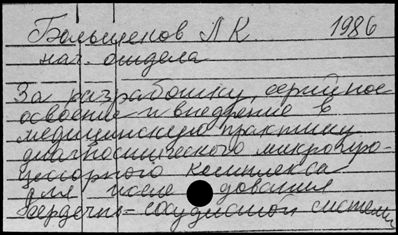 Большенов Л К. 1986
нач. отдела
За разработку, серийное
освоение и внедрение в
медицинскую практику
диагностического микропро-
цессорного комплекса
для иссле дования
сердечно-сосудистой системы